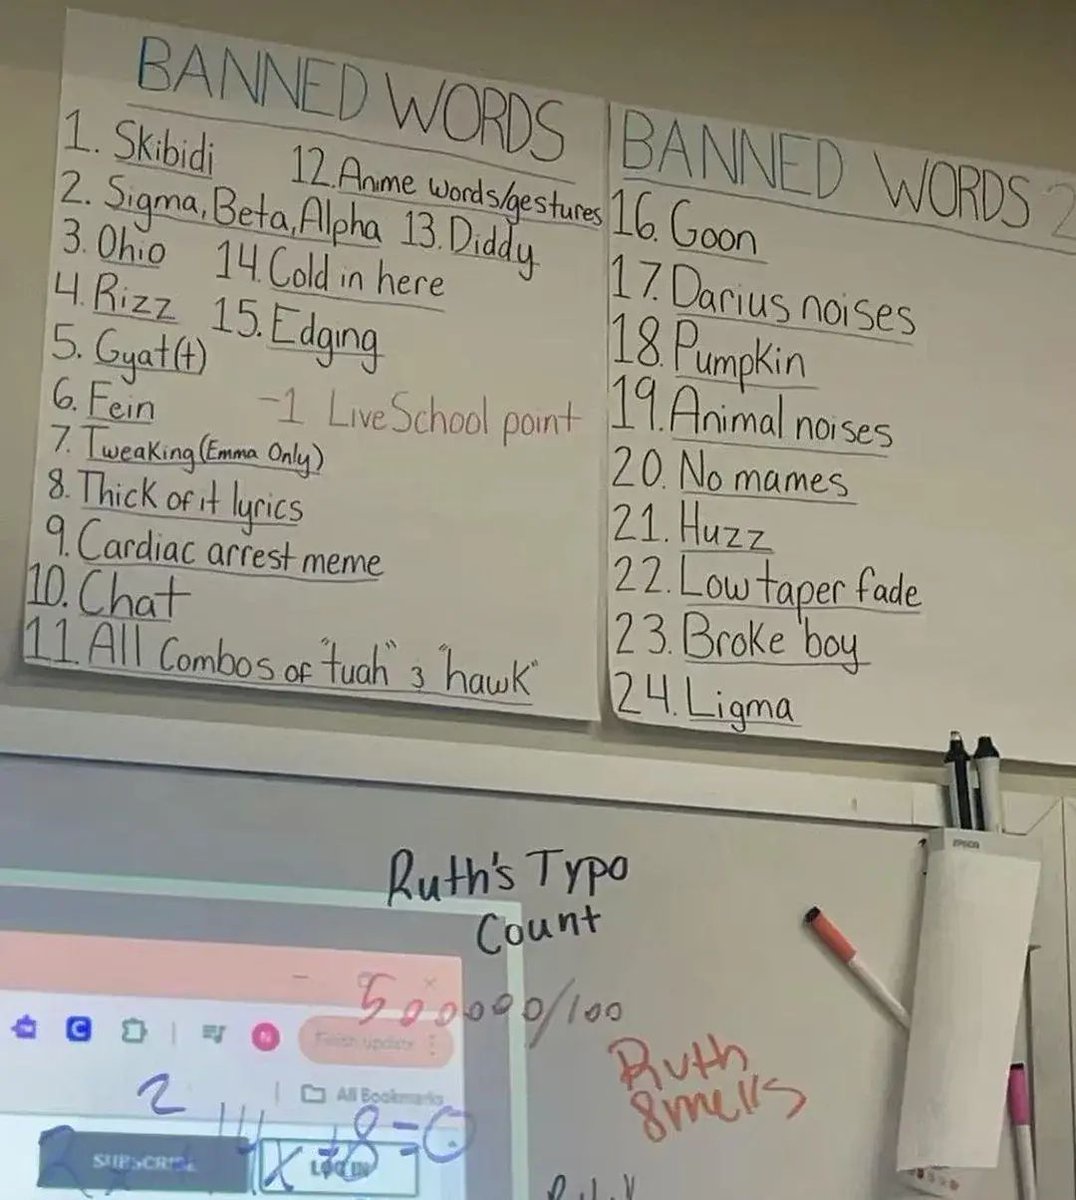 BANNED WORDS
1. Skibidi
2. Sigma, Beta, Alpha
3. Ohio
4. Rizz
5. Gyat(t)
6. Fein
7. Tweaking (Emma Only)
8. Thick of it lyrics
9. Cardiac arrest meme
10. Chat
11. All combos of "tuah" & "hawk"
12. Anime words/gestures
13. Diddy
14. Cold in here
15. Edging
-1 LiveSchool point
BANNED WORDS 2
16. Goon
17. Darius noises
18. Pumpkin
19. Animal noises
20. No mames
21. Huzz
22. Low taper fade
23. Broke boy
24. Ligma
EPSON
Ruth's Typo
Count
500000/100
Ruth
smells
Finish update
All Bookmarks
SUBSCRIBE
LOG IN